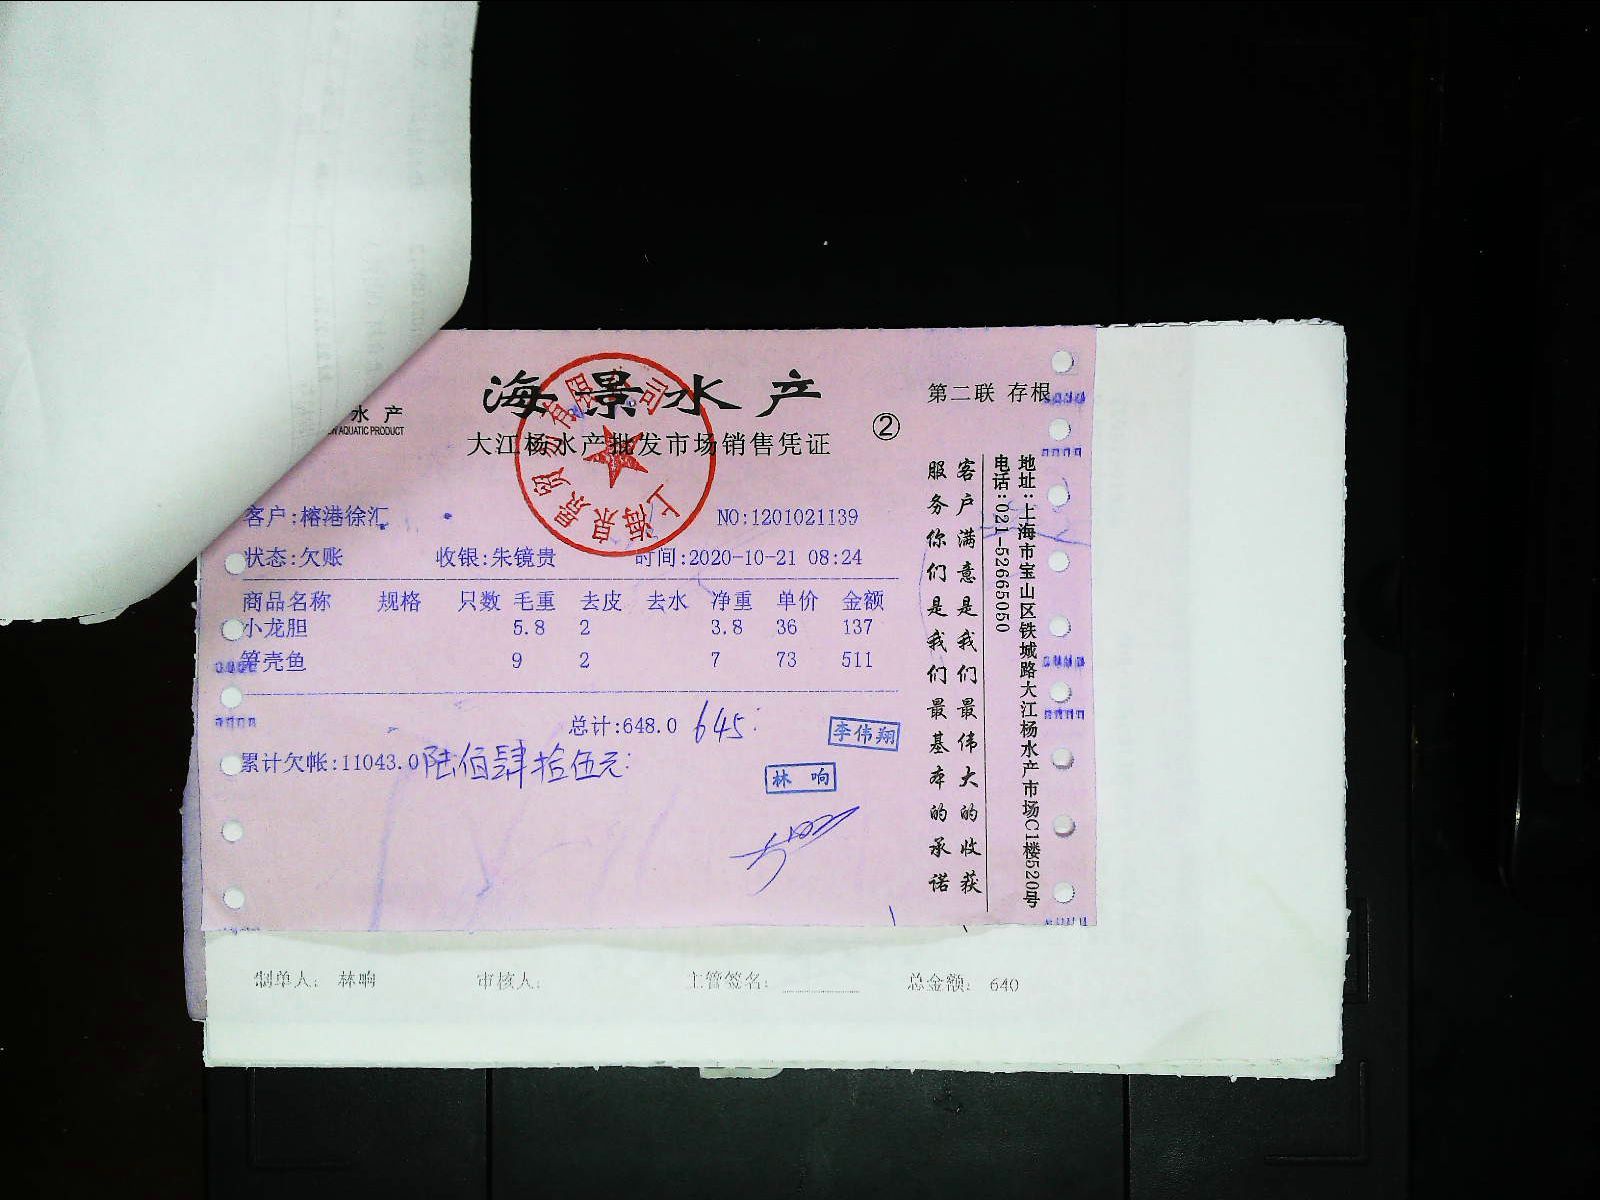 海景水产
第二联 存根
水 产
AQUATIC PRODUCT
大江杨水产批发市场销售凭证
②
上海泉景贸易有限公司
客户:榕港徐汇
NO:1201021139
状态:欠账 收银:朱镜贵 时间:2020-10-21 08:24
商品名称 规格 只数 毛重 去皮 去水 净重 单价 金额
小龙胆 5.8 2 3.8 36 137
笋壳鱼 9 2 7 73 511
总计:648.0 645
李伟翔
累计欠帐:11043.0 陆佰肆拾伍元
林 响
客户满意是我们最伟大的收获
服务你们是我们最基本的承诺
地址:上海市宝山区铁城路大江杨水产市场C1楼520号
电话:021-52665050
制单人: 林响 审核人: 主管签名: 总金额: 640